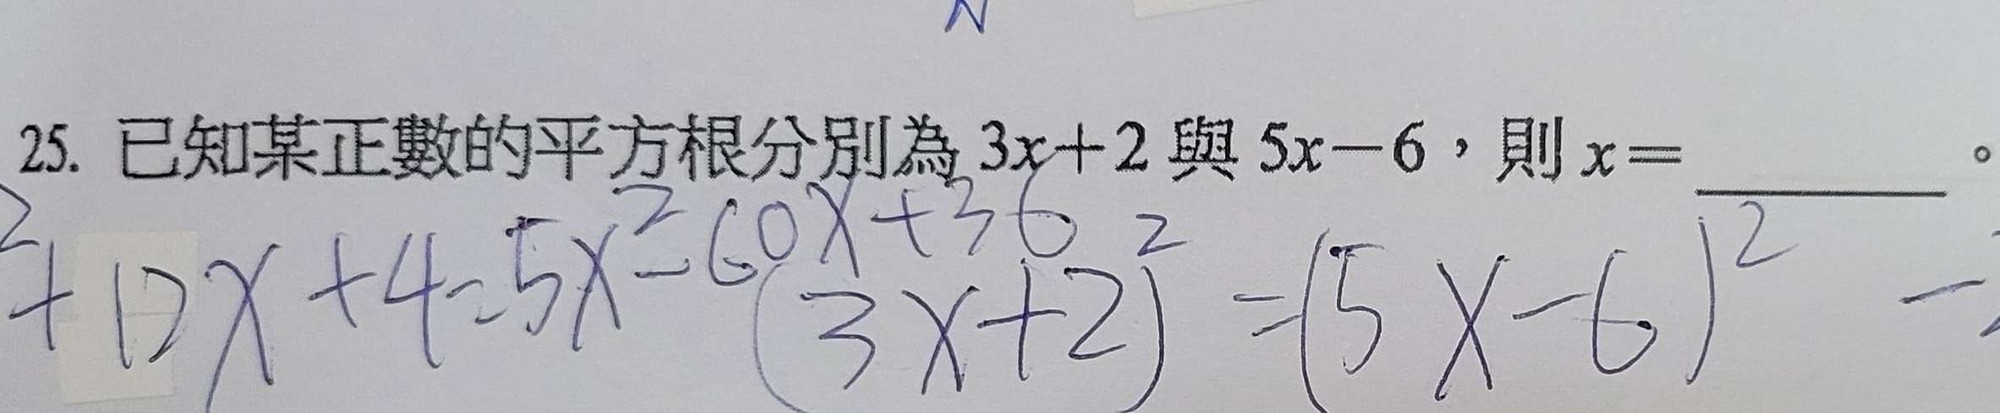 25. 已知某正數的平方根分別為 3x+2 與 5x-6，則 x=________。
²+12x+4=5x²-60x+36
(3x+2)²=(5x-6)²